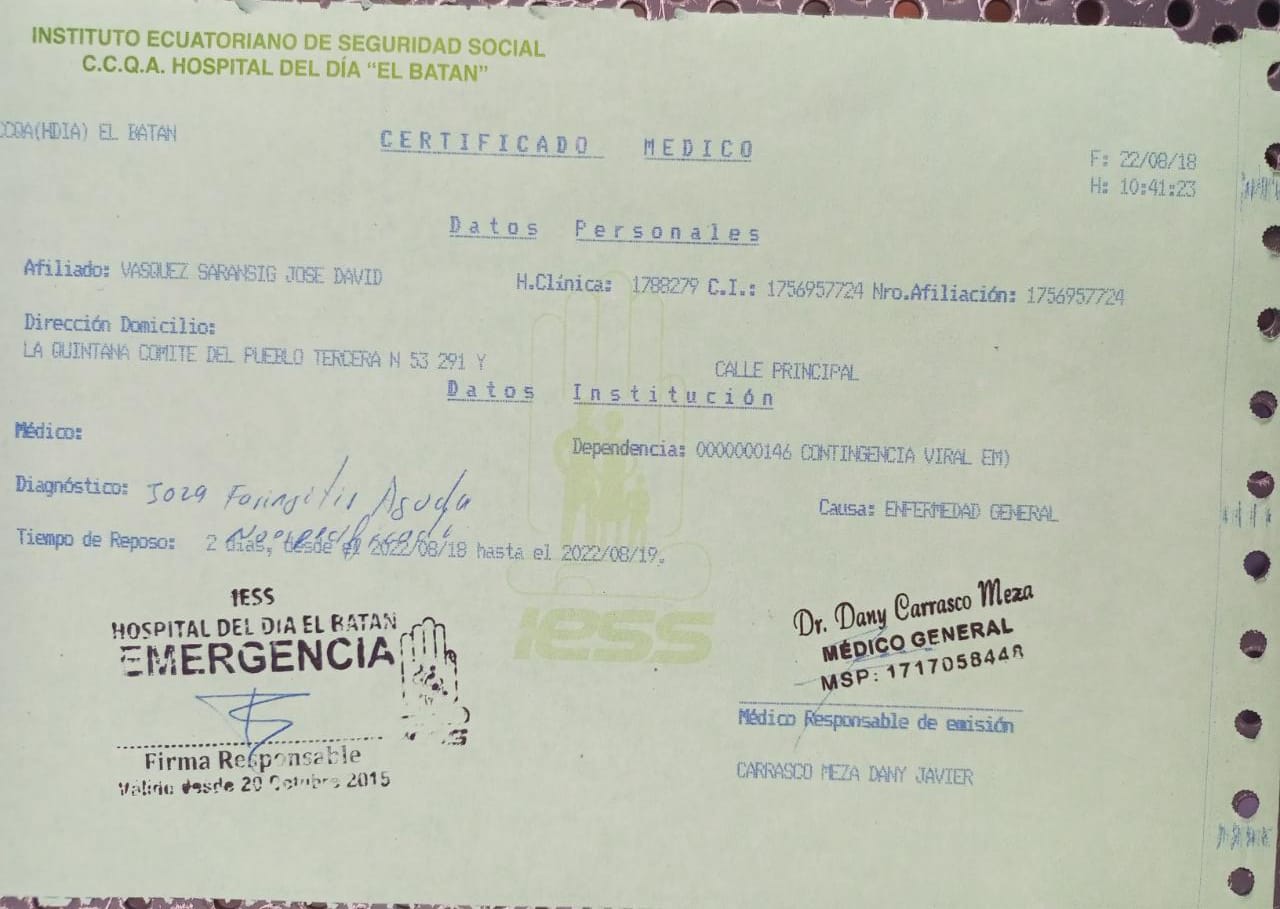 INSTITUTO ECUATORIANO DE SEGURIDAD SOCIAL
C.C.Q.A. HOSPITAL DEL DÍA “EL BATAN”
CCQA(HDIA) EL BATAN
CERTIFICADO MEDICO
F: 22/08/18
H: 10:41:23
Datos Personales
Afiliado: VASQUEZ SARANSIG JOSE DAVID H.Clínica: 1788279 C.I.: 1756957724 Nro.Afiliación: 1756957724
Dirección Domicilio:
LA QUINTANA COMITE DEL PUEBLO TERCERA N 53 291 Y CALLE PRINCIPAL
Datos Institución
Médico: Dependencia: 0000000146 CONTINGENCIA VIRAL EM)
Diagnóstico: J029 Faringitis Aguda Causa: ENFERMEDAD GENERAL
Tiempo de Reposo: 2 días, desde el 2022/08/18 hasta el 2022/08/19.
IESS
HOSPITAL DEL DIA EL BATAN
EMERGENCIA
Firma Responsable
Válido desde 20 Octubre 2015
iess
Dr. Dany Carrasco Meza
MÉDICO GENERAL
MSP: 1717058448
Médico Responsable de emisión
CARRASCO MEZA DANY JAVIER